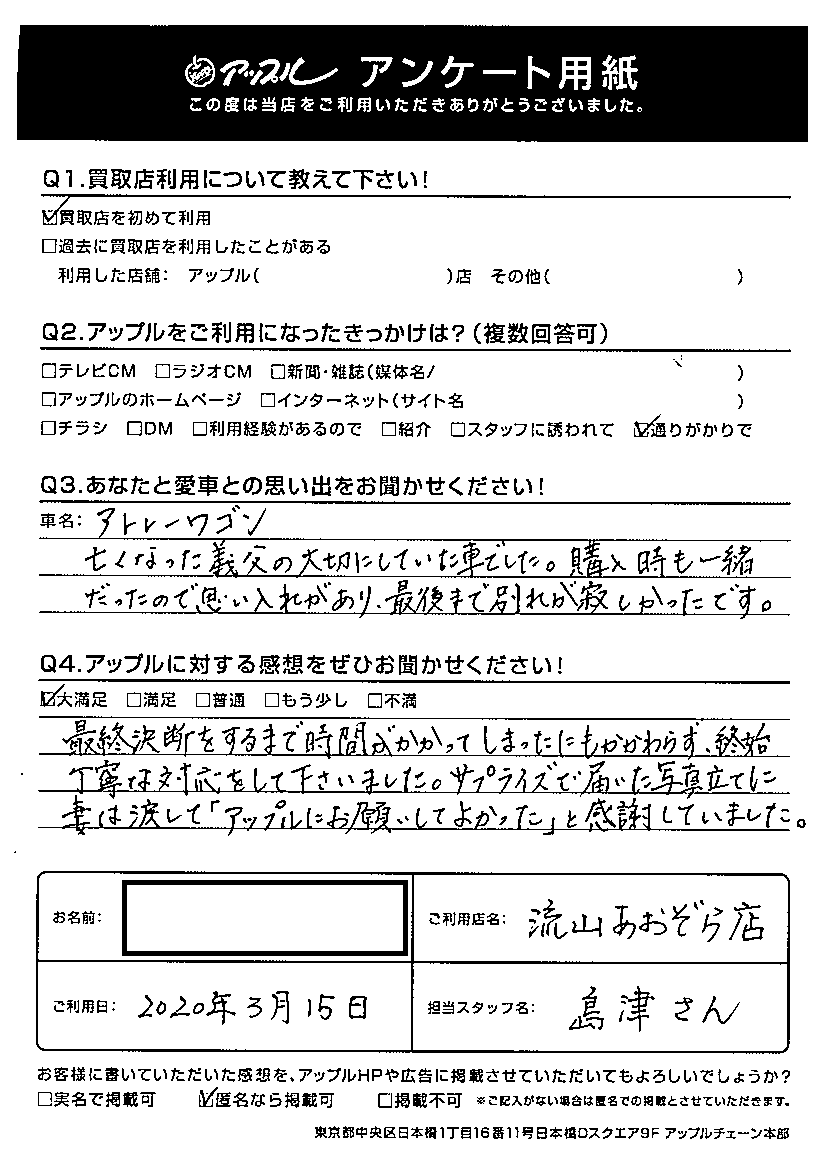 アップル アンケート用紙
この度は当店をご利用いただきありがとうございました。
Q1.買取店利用について教えて下さい!
☑買取店を初めて利用
□過去に買取店を利用したことがある
利用した店舗: アップル( )店 その他( )
Q2.アップルをご利用になったきっかけは?(複数回答可)
□テレビCM □ラジオCM □新聞・雑誌(媒体名/ )
□アップルのホームページ □インターネット(サイト名 )
□チラシ □DM □利用経験があるので □紹介 □スタッフに誘われて ☑通りがかりで
Q3.あなたと愛車との思い出をお聞かせください!
車名: アトレーワゴン
亡くなった義父の大切にしていた車でした。購入時も一緒
だったので思い入れがあり、最後まで別れが寂しかったです。
Q4.アップルに対する感想をぜひお聞かせください!
☑大満足 □満足 □普通 □もう少し □不満
最終決断をするまで時間がかかってしまったにもかかわらず、終始
丁寧な対応をして下さいました。サプライズで届いた写真立てに
妻は涙して「アップルにお願いしてよかった」と感謝していました。
お名前: ご利用店名: 流山あおぞら店
ご利用日: 2020年3月15日 担当スタッフ名: 島津さん
お客様に書いていただいた感想を、アップルHPや広告に掲載させていただいてもよろしいでしょうか?
□実名で掲載可 ☑匿名なら掲載可 □掲載不可 ※ご記入がない場合は匿名での掲載とさせていただきます。
東京都中央区日本橋1丁目16番11号日本橋Dスクエア9F アップルチェーン本部